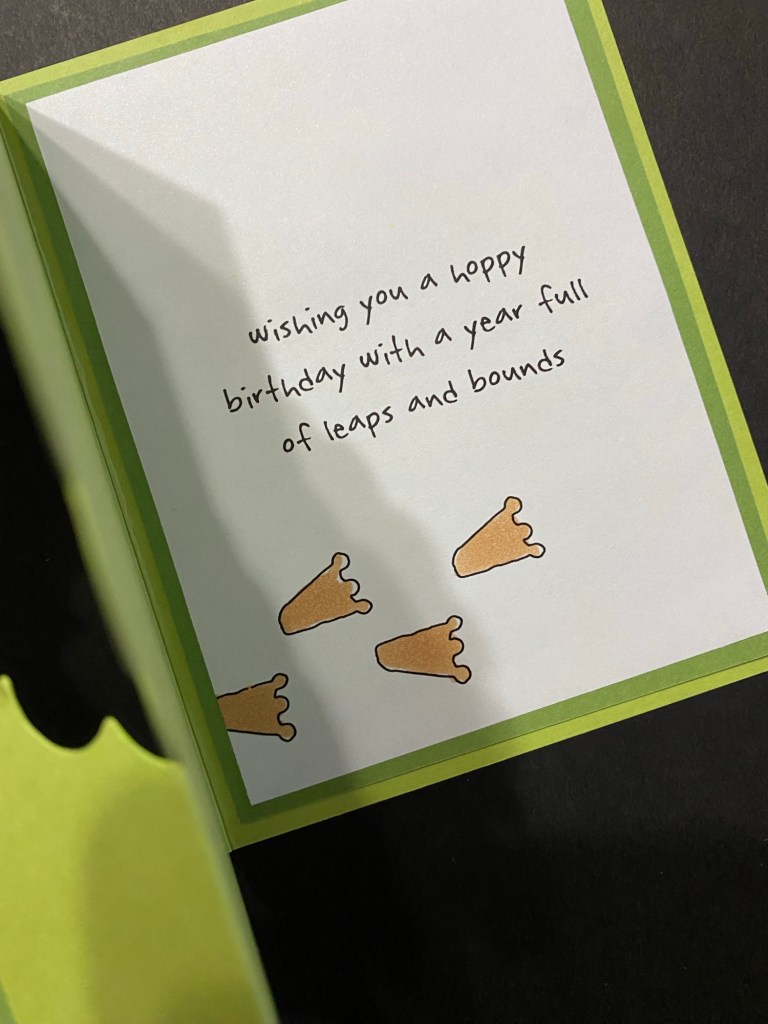 wishing you a hoppy
birthday with a year full
of leaps and bounds